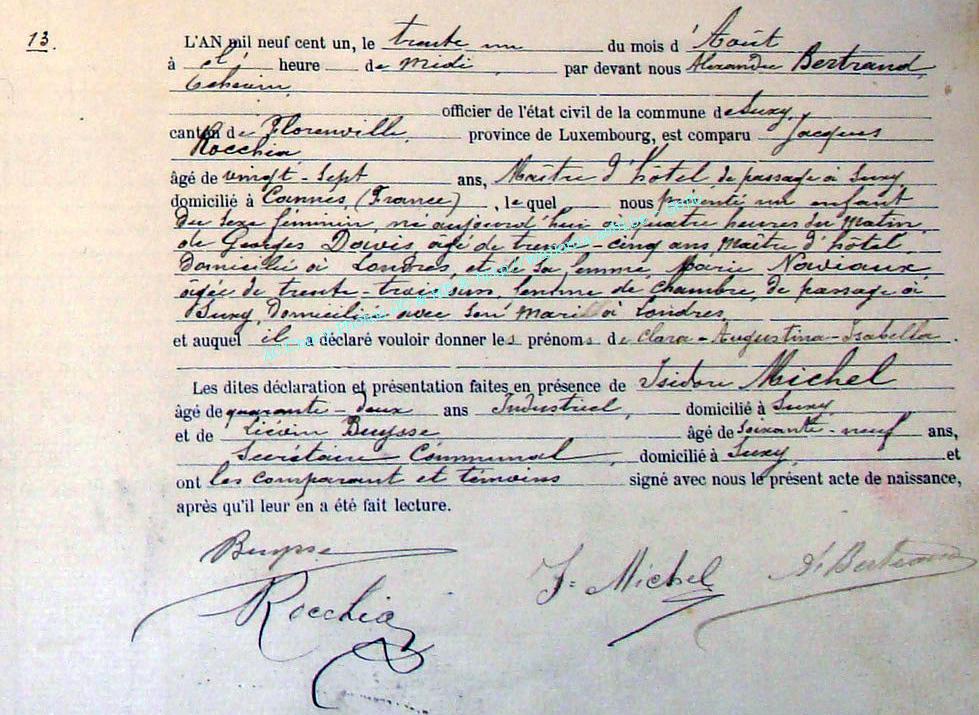 13.
L'AN mil neuf cent un, le trente un du mois d'Août
à heure de midi, par devant nous Alexandre Bertrand,
Echevin,
officier de l'état civil de la commune de Suxy,
canton de Florenville, province de Luxembourg, est comparu Jacques
Rocchia
âgé de vingt-sept ans, Maître d'hôtel de passage à Suxy
domicilié à Cannes, (France), lequel nous présenté un enfant
du sexe féminin, né aujourd'hui à quatre heures du matin,
de Georges Dawis âgé de trente-cinq ans Maître d'hôtel
domicilié à Londres, et de sa femme, Marie Noviaux,
âgée de trente-trois ans, femme de chambre, de passage à
Suxy, domiciliée avec son mari à Londres,
et auquel il a déclaré vouloir donner les prénoms de Clara-Augustina-Isabella.
Les dites déclaration et présentation faites en présence de Isidore Michel
âgé de quarante-deux ans Industriel, domicilié à Suxy
et de Liévin Buysse âgé de soixante-neuf ans,
Secrétaire Communal, domicilié à Suxy, et
ont les comparant et témoins signé avec nous le présent acte de naissance,
après qu'il leur en a été fait lecture.
Buysse
J. Michel
A. Bertrand
Rocchia